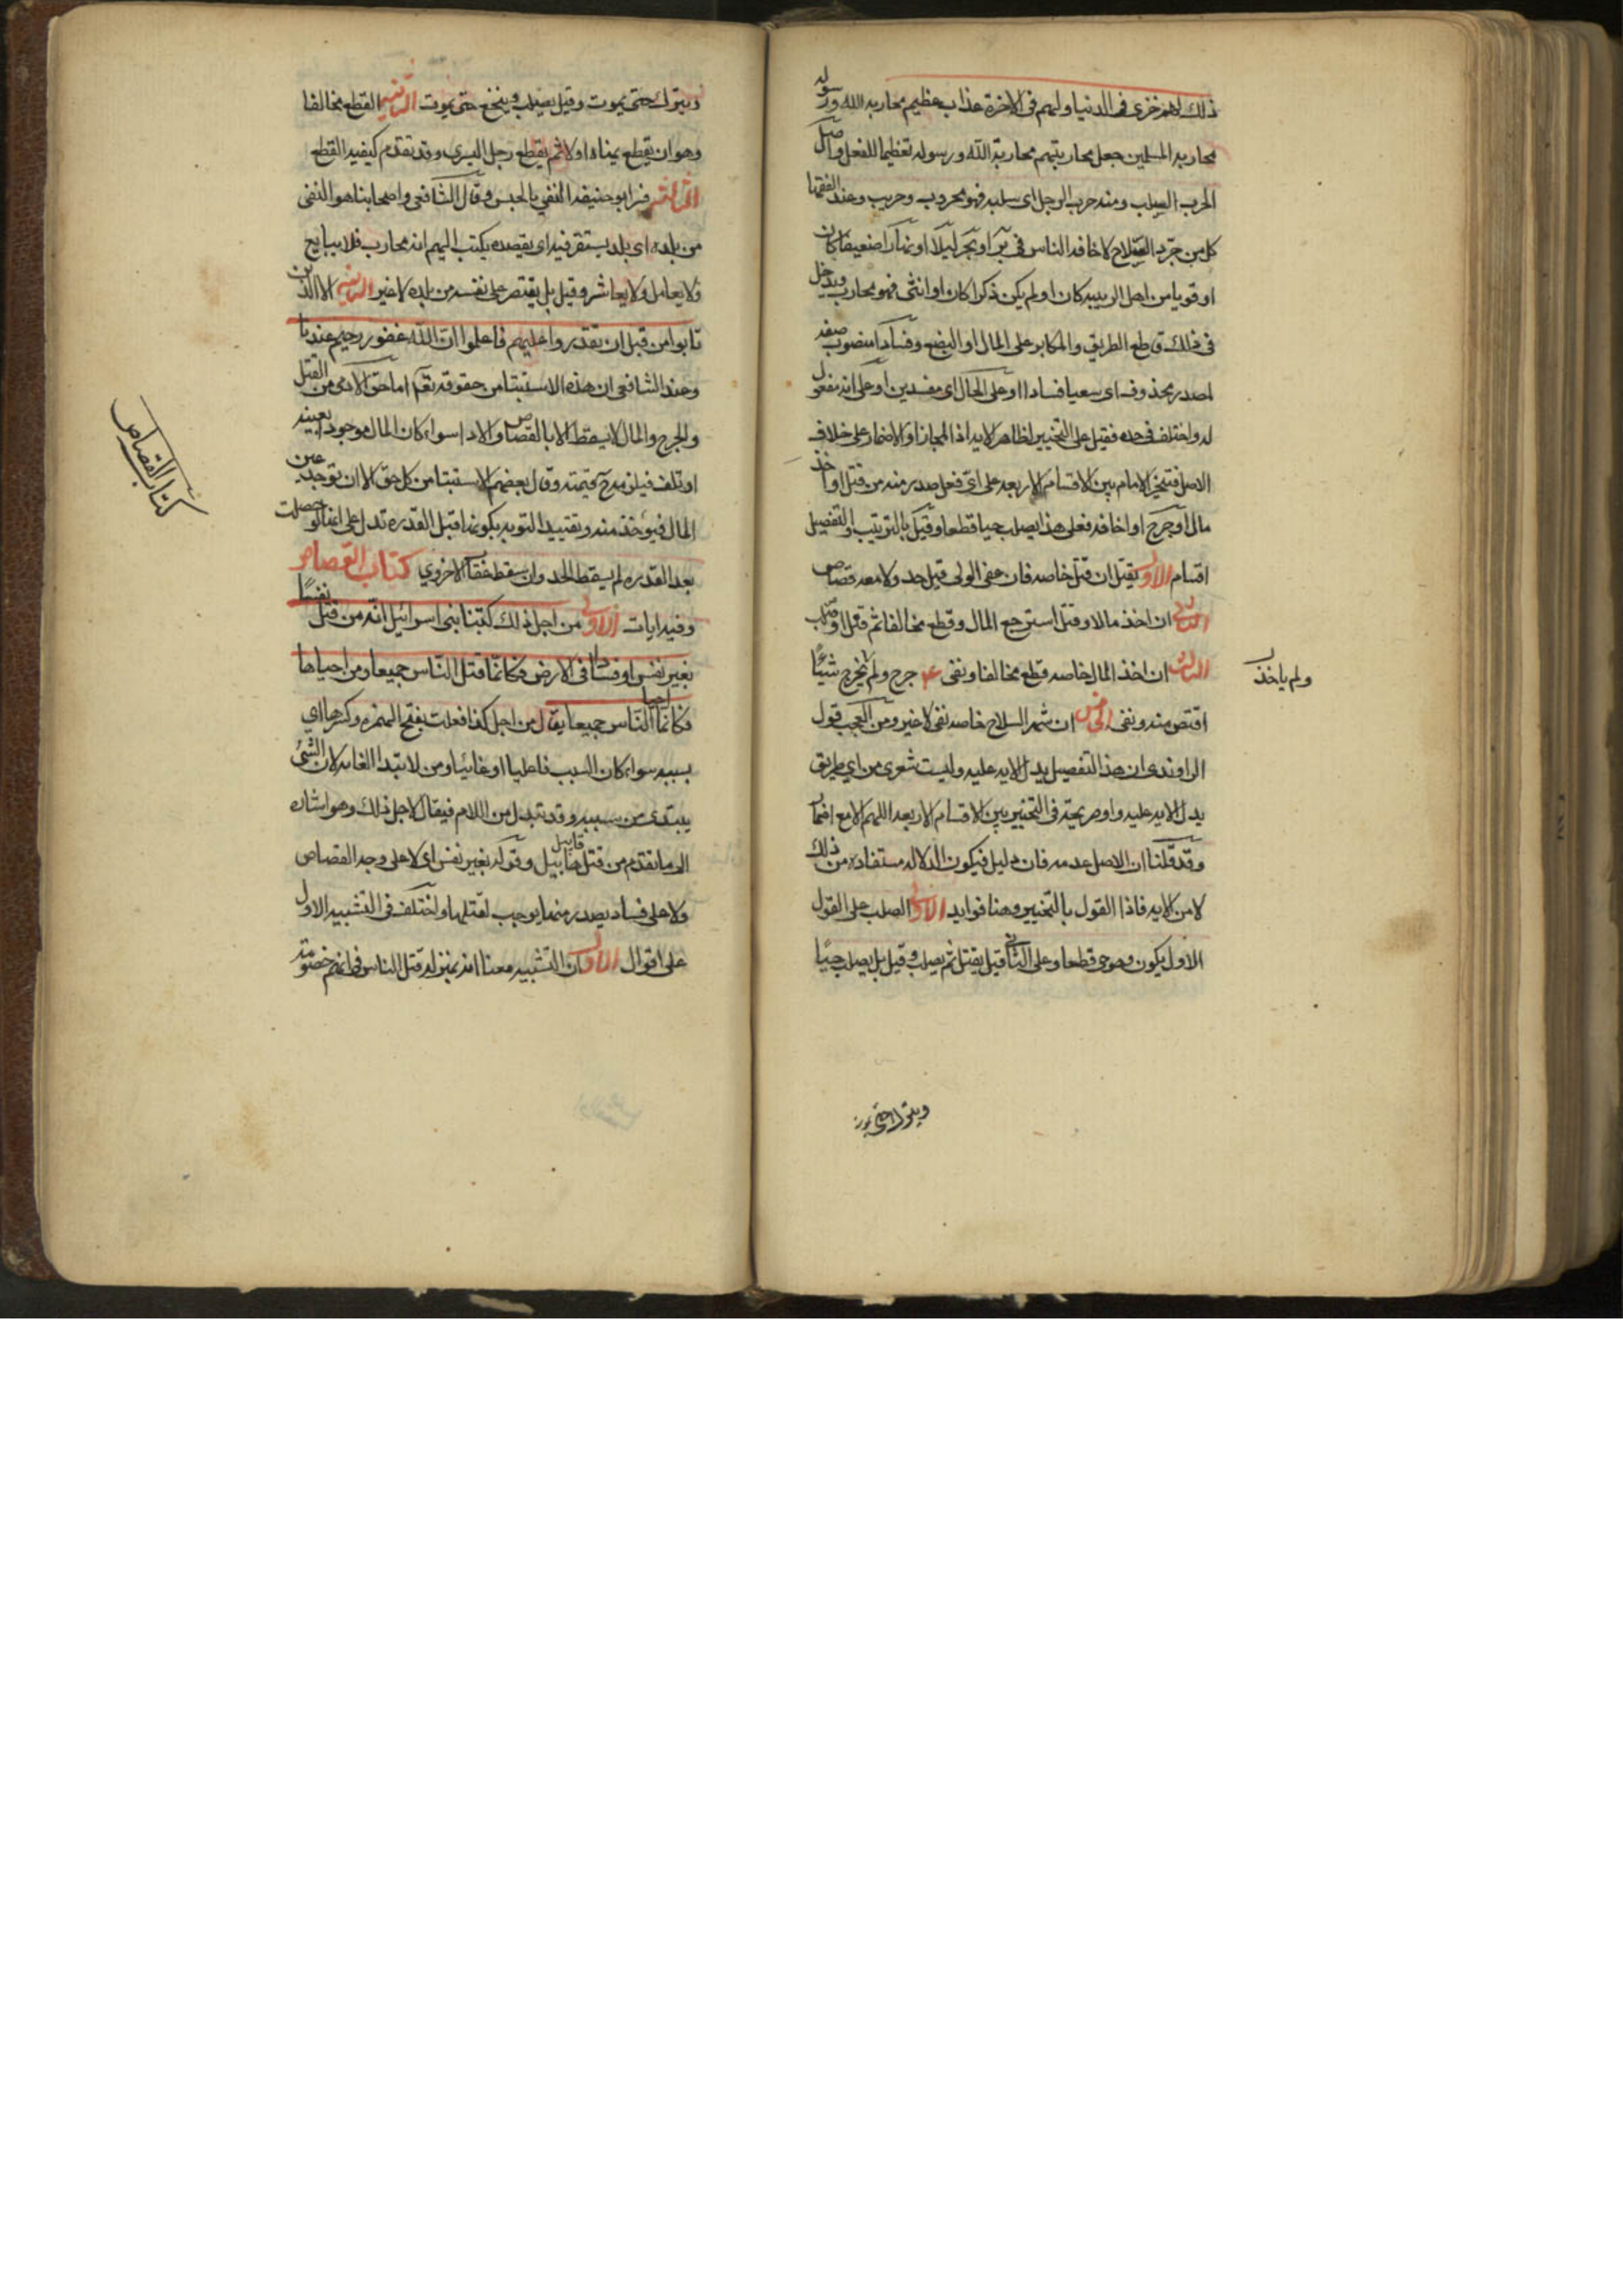 ذلك لهم خزي في الدنيا ولهم في الاخرة عذاب عظيم محاربه الله ورسوله
محاربه المسلمين جعل محاربتهم محاربة الله ورسوله تعظيما للفعل واصل
الحرب السلب ومنه حرب الرجل اى سلبه فهو محروب وحريب وعند الفقها
كل من جرد السلاح لاخافه الناس في بر او بحر ليلا او نهارا ضعيفا كان
او قويا من اهل الريبه كان او لم يكن ذكرا كان او انثى فهو محارب ويدخل
في ذلك قاطع الطريق والمكابر على المال او البضع وفسادا منصوب صفه
لمصدر محذوف اى سعيا فسادا او على الحال اى مفسدين او على انه مفعول
له واختلف في حده فقيل على التخيير لظاهر الايه اذ المجاز او الاضمار على خلاف
الاصل فتخير الامام بين الاقسام الاربعه على اى فعل صدر منه من قتل او اخذ
مال او جرح او اخافه فعلى هذا يصلب حيا قطعا وقيل بالترتيب والتفصيل
اقسام الاول يقتل ان قتل خاصه فان عفى الولى قتل حد ولا معه قصاص
الثاني ان اخذ مالا وقتل استرجع المال وقطع مخالفا ثم قتل او صلب
الثالث ان اخذ المال خاصه قطع مخالفا ونفى ۴ جرح ولم يجرح شيئا
ولم ياخذ
اقتص منه ونفى الخامس ان شهر السلاح خاصه نفى لا غير ومن العجب قول
الراوندى ان هذا التفصيل يدل الايه عليه وليت شعرى من اي طريق
يدل الايه عليه واو صريحة في التخيير بين الاقسام الاربعه اللهم الا مع اضمار
وقد قلنا ان الاصل عدمه فان دليل فيكون الدلاله مستفاده من ذلك
لا من الايه فاذا القول بالتخيير وهنا فوايد الاولى الصلب على القول
الاول يكون وهو حى قطعا وعلى الثانى قيل يقتل ثم يصلب وقيل بل يصلب حيا
ويترك حتى يموت
ويترك حتى يموت وقيل يصلب وينخع حتى يموت الثانيه القطع مخالفا
وهو ان يقطع يمناه اولا ثم يقطع رجل اليسرى وقد تقدم كيفيه القطع
الثالثه فسر ابو حنيفه النفي بالحبس وقال الشافعى واصحابنا هو النفى
من بلده اى بلد يستقر فيه اى يقصده يكتب اليهم انه محارب فلا يبايع
ولا يعامل ولا يعاشر وقيل بل يقتصر على نفسه من بلده لا غير الثانيه الا الذين
تابوا من قبل ان تقدروا عليهم فاعلموا ان الله غفور رحيم عندنا
وعند الشافعى ان هذه الاستثنا من حقوقه تعم اما حق الادمى من القتل
والجرح والمال لا يسقط الا بالقصاص والاداسواء كان المال موجودا بعينه
او تلف فيلزمه ح قيمته وقال بعضهم الاستثنا من كل حق الا ان توجد عين
المال فيوخذ منه وتقييد التوبه بكونها قبل القدره تدل على انها لو حصلت
بعد القدره لم يسقط الحد وان سقط حقا الاخروي كتاب القصاص
كتاب القصاص
وفيه ايات الاولى من اجل ذلك كتبنا بنى اسرائيل انه من قتل نفسا
بغير نفس او فساد في الارض فكانما قتل الناس جميعا ومن احياها
فكانما احيا الناس جميعا يقال من اجل كذا فعلت بفتح الهمزه وكسرها اي
بسببه سواء كان السبب فاعليا او غائيا ومن لابتدا الغايه لان الشئ
يبتدى من سببه وقد تبدل من اللام فيقال لاجل ذلك وهو اشاره
الى ما تقدم من قتل قابيل هابيل وقوله بغير نفس اى لا على وجه القصاص
ولا على فساد يصدر منها يوجب لقتلها واختلف في التشبيه الاول
على اقوال الاول ان التشبيه معناه انه بمنزله قتل الناس فى انهم خصومه